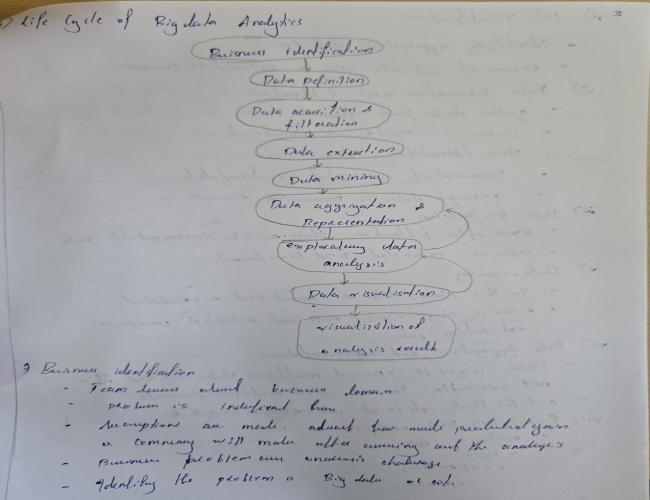 Life Cycle of Big data Analytics
3
Business identification
Data Definition
Data acusition &
filteration
Data extraction
Data mining
Data aggrigation &
Representation
exploratory data
analysis
Data visualisation
visualization of
analysis result
Business identification
- Team about business domain
- problem is
- are made about how much gain
a company will make after running out the analysis
- Business problem can
- Identify the problem a Big data or not.